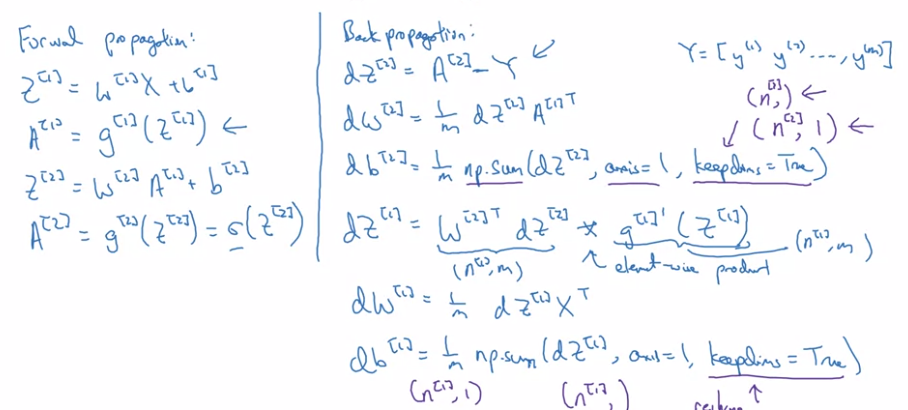 Forward propagation:
Z^[1] = W^[1] X + b^[1]
A^[1] = g^[1](Z^[1]) ←
Z^[2] = W^[2] A^[1] + b^[2]
A^[2] = g^[2](Z^[2]) = σ(Z^[2])
Back propagation:
dZ^[2] = A^[2] - Y ↙
dW^[2] = 1/m dZ^[2] A^[1]T
db^[2] = 1/m np.sum(dZ^[2], axis=1, keepdims=True)
dZ^[1] = W^[2]T dZ^[2] * g^[1]'(Z^[1])
(n^[1], m) ↖ element-wise product (n^[1], m)
dW^[1] = 1/m dZ^[1] X^T
db^[1] = 1/m np.sum(dZ^[1], axis=1, keepdims=True)
(n^[1], 1) (n^[1],) ↑
Y = [y^(1) y^(2) ..., y^(m)]
(n^[2],) ←
↙ (n^[2], 1) ←